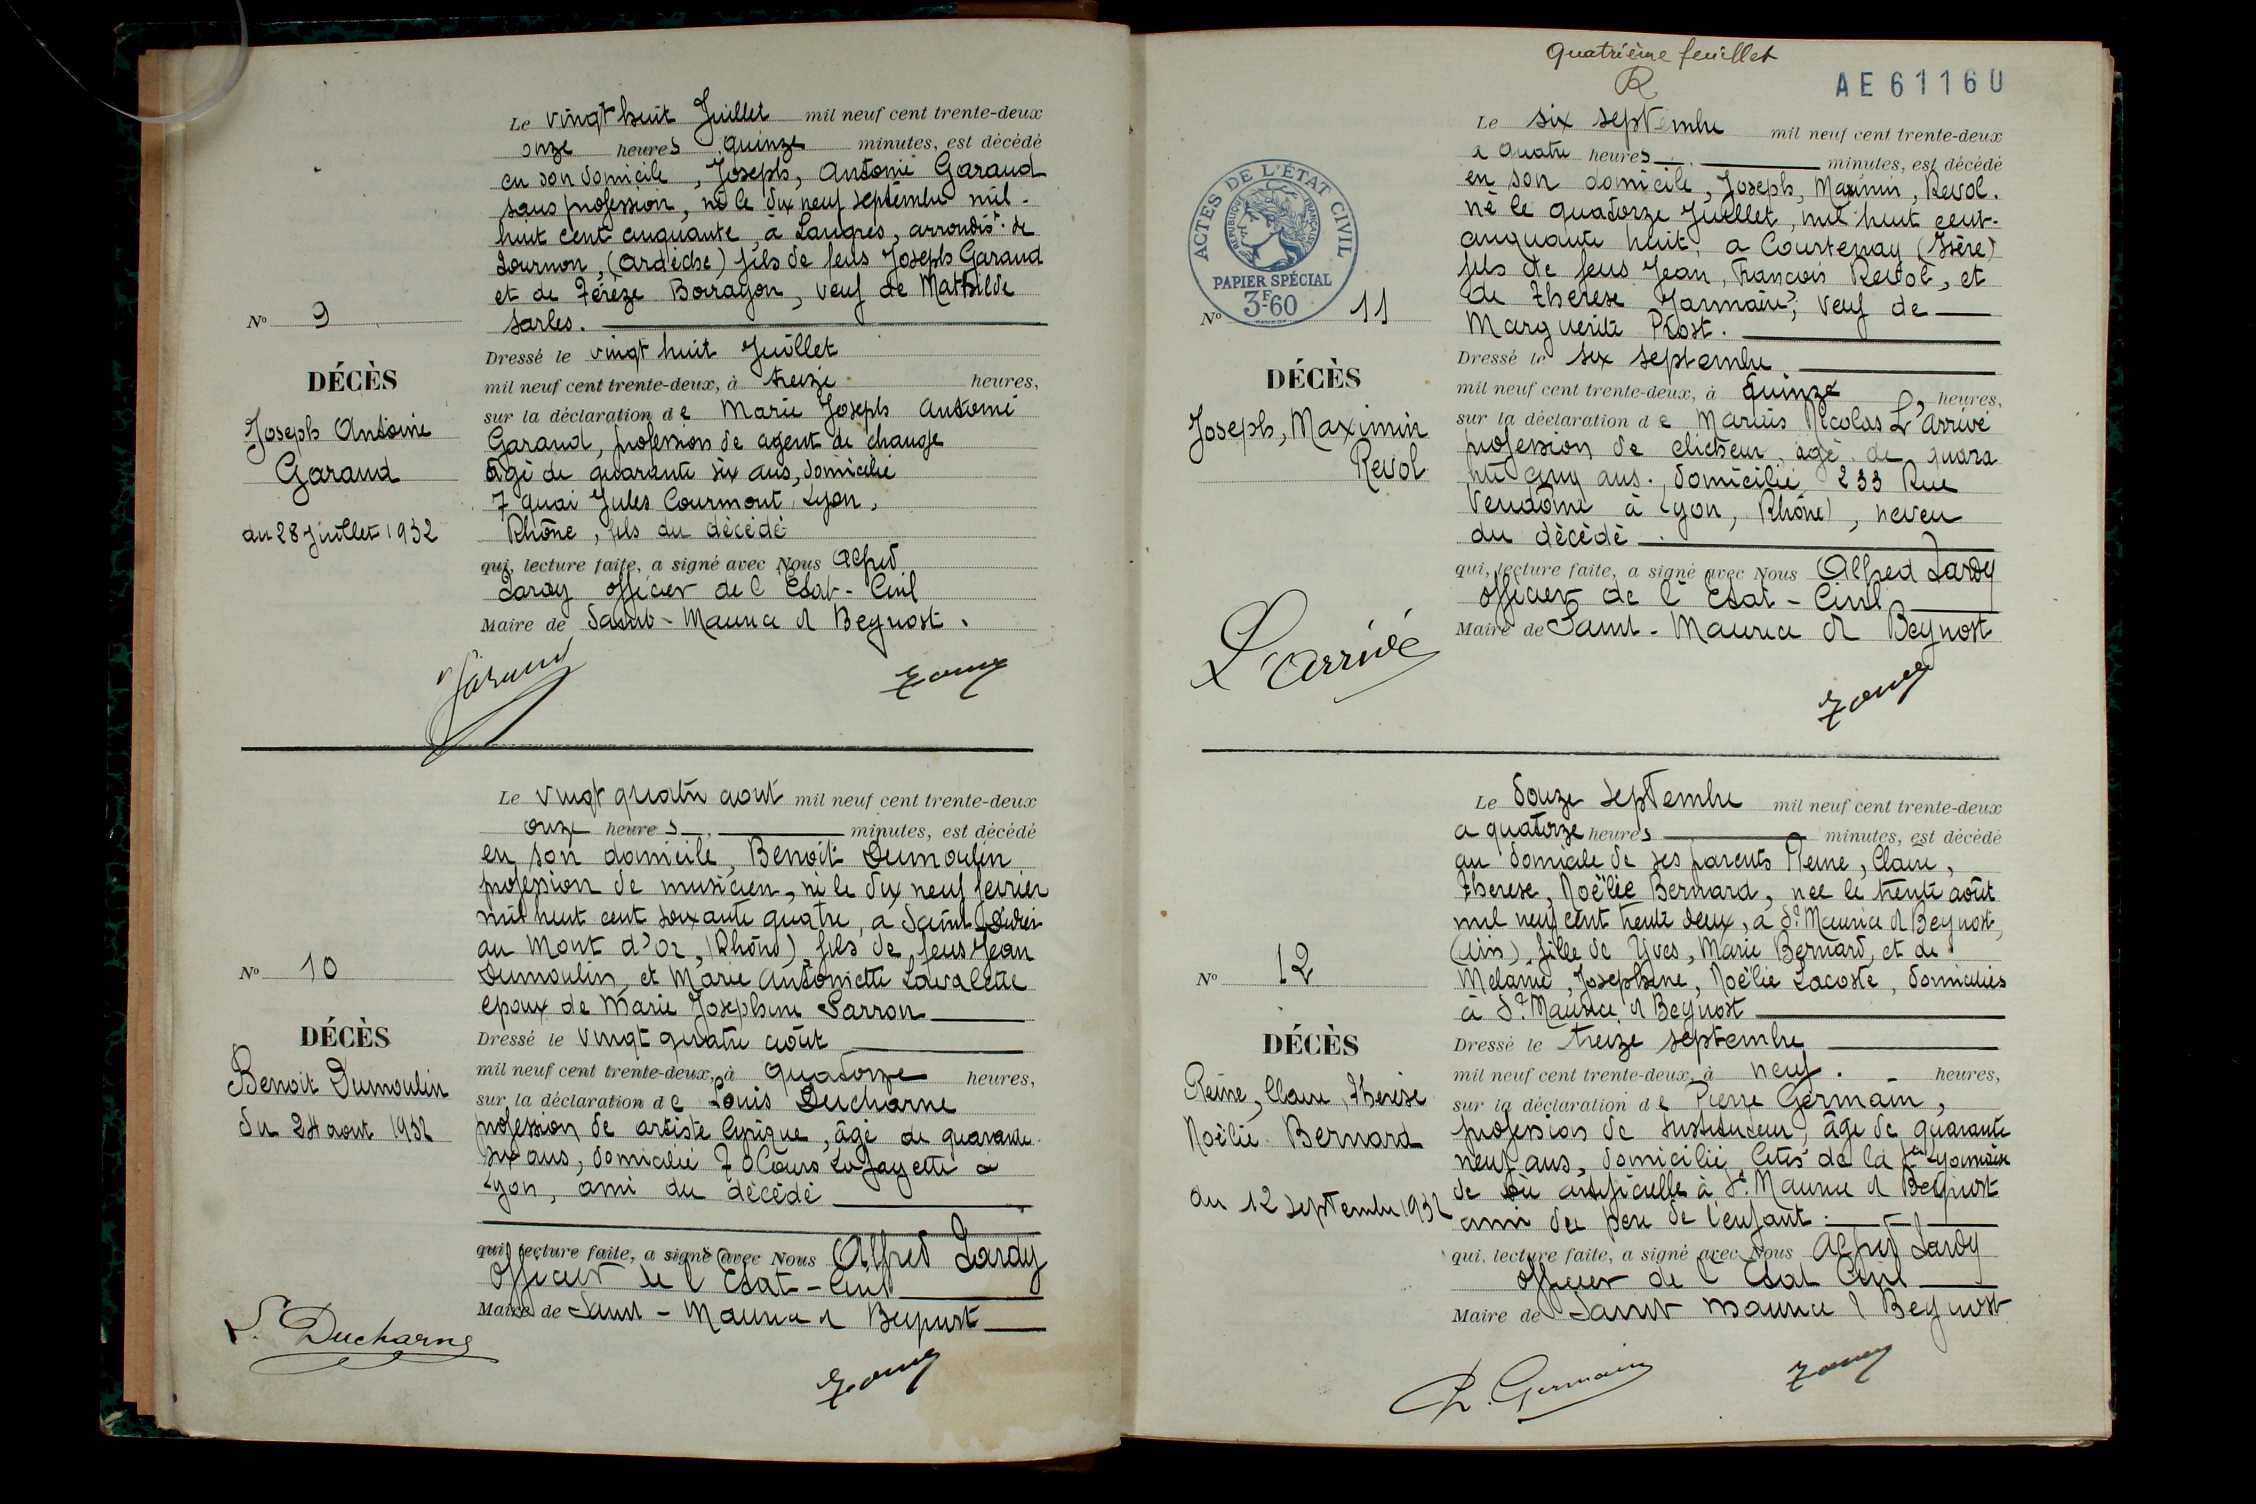 Le vingt huit Juillet mil neuf cent trente-deux
onze heures quinze minutes, est décédé
en son domicile, Joseph, Antoine Garaud
sans profession, né le dix neuf septembre mil-
huit cent cinquante, à Langres, arrondist. de
Tournon, (Ardèche) fils de feus Joseph Garaud
et de Térèze Bouragon, veuf de Mathilde
Sarles.
Dressé le vingt huit Juillet
mil neuf cent trente-deux, à treize heures,
sur la déclaration de Marie Joseph Antoine
Garaud, profession de agent de change
âgé de quarante six ans, domicilié
7 quai Jules Courmont Lyon,
Rhône, fils du décédé
qui, lecture faite, a signé avec Nous Alfred
Lardy officier de l'Etat-Civil
Maire de Saint-Maurice d Beynost.
N° 9
DÉCÈS
Joseph Antoine
Garaud
du 28 Juillet 1932
Garaud
Le vingt quatre aout mil neuf cent trente-deux
onze heures minutes, est décédé
en son domicile, Benoit Dumoulin
profession de musicien, né le dix neuf fevrier
mil huit cent soixante quatre, a Saint Didier
au Mont d'Or, (Rhône), fils de feus Jean
Dumoulin, et Marie Antoinette Lavalette
epoux de Marie Josephine Sarron
Dressé le vingt quatre août
mil neuf cent trente-deux, à quatorze heures,
sur la déclaration de Louis Ducharne
profession de artiste lyrique, âgé de quarante
six ans, domicilié 70 Cours Lafayette à
Lyon, ami du décédé
qui, lecture faite, a signé avec Nous Alfred Lardy
officier de l'Etat-Civil
Maire de Saint-Maurice d Beynost
N° 10
DÉCÈS
Benoit Dumoulin
du 24 aout 1932
L. Ducharne
quatrième feuillet
R
AE 61160
ACTES DE L'ÉTAT CIVIL
RÉPUBLIQUE FRANÇAISE
PAPIER SPÉCIAL
3F60
Le six septembre mil neuf cent trente-deux
a quatre heures minutes, est décédé
en son domicile, Joseph, Maximin, Revol.
né le quatorze Juillet, mil huit cent-
cinquante huit, a Courtenay (Isère)
fils de feus Jean, Francois Revol, et
de Therese Jannain, veuf de
Marguerite Prost.
Dressé le six septembre
mil neuf cent trente-deux, à quinze heures,
sur la déclaration de Marius Nicolas L'arrivé
profession de clicheur, âgé de quara
nte cinq ans. domicilié 233 Rue
Vendôme à Lyon, Rhône), neveu
du décédé
qui, lecture faite, a signé avec Nous Alfred Lardy
officier de l'Etat-Civil
Maire de Saint-Maurice d Beynost
N° 11
DÉCÈS
Joseph, Maximin
Revol
L'arrivée
Le douze septembre mil neuf cent trente-deux
a quatorze heures minutes, est décédé
au domicile de ses parents Reine, Claire,
Therese, Noëlie Bernard, nee le trente août
mil neuf cent trente deux, a St Maurice d Beynost,
(Ain), fille de Yves, Marie Bernard, et de
Melanie, Josephine, Noëlie Lacoste, domiciliés
à St Maurice d Beynost
Dressé le treize septembre
mil neuf cent trente-deux, à neuf. heures,
sur la déclaration de Pierre Germain,
profession de Instituteur, âgé de quarante
neuf ans, domicilié Cités de la Sté Lyonnaise
de soie artificielle à St Maurice d Beynost
ami du père de l'enfant
qui, lecture faite, a signé avec Nous Alfred Lardy
officier de l'Etat Civil
Maire de Saint Maurice d Beynost
N° 12
DÉCÈS
Reine, Claire, Therèse
Noëlie Bernard
du 12 septembre 1932
P. Germain